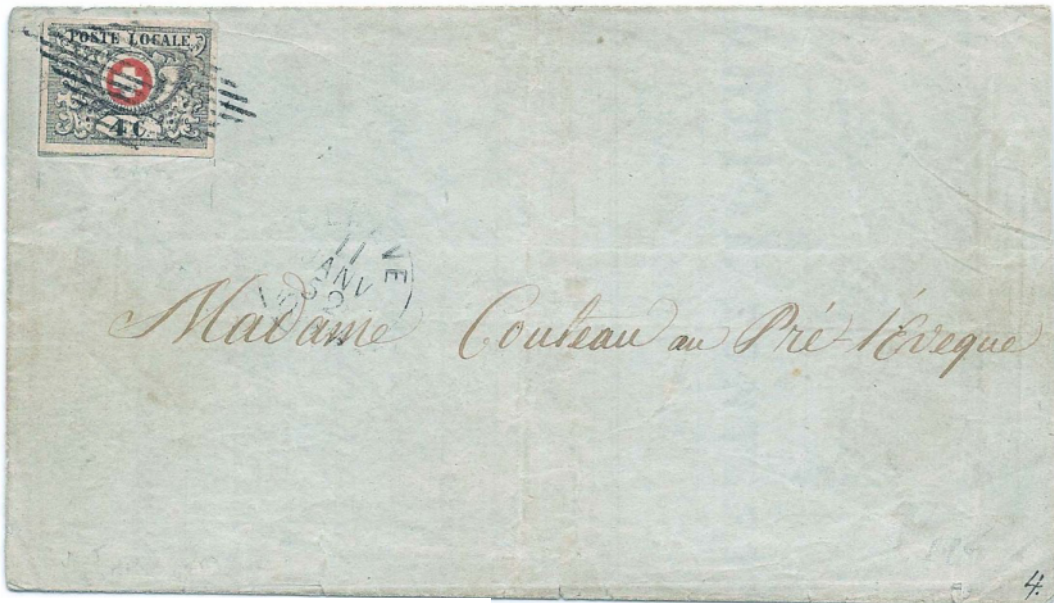 POSTE LOCALE
4 C.
GENEVE
11
JANV
52
Madame Couteau au Pré-l'Eveque
4.